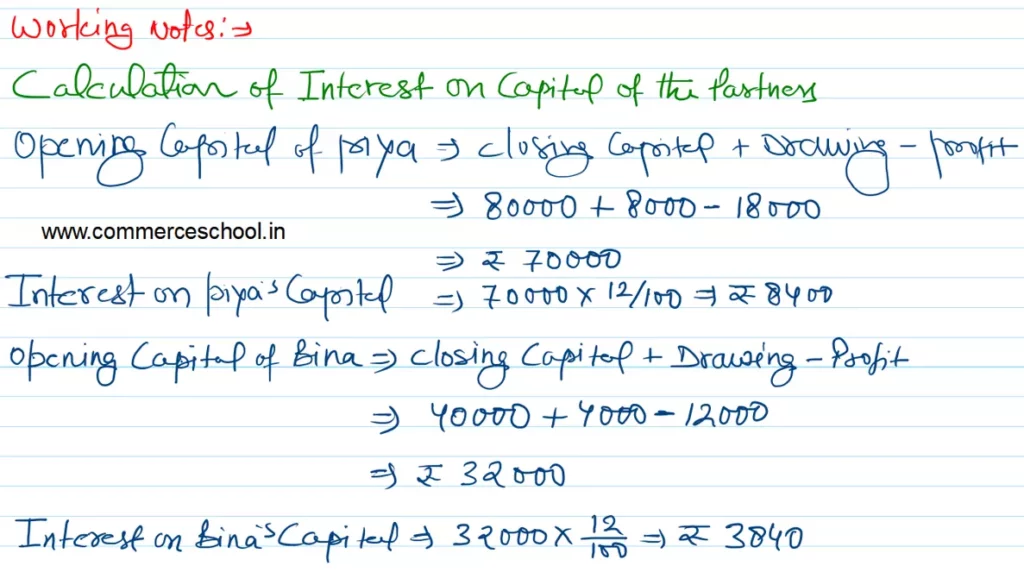 Working Notes:⇒
Calculation of Interest on Capital of the Partners
Opening Capital of Priya ⇒ Closing Capital + Drawing - profit
⇒ 80000 + 8000 - 18000
www.commerceschool.in
⇒ ₹ 70000
Interest on priya's Capital ⇒ 70000 × 12/100 ⇒ ₹ 8400
Opening Capital of Bina ⇒ Closing Capital + Drawing - Profit
⇒ 40000 + 4000 - 12000
⇒ ₹ 32000
Interest on Bina's Capital ⇒ 32000 × 12/100 ⇒ ₹ 3840